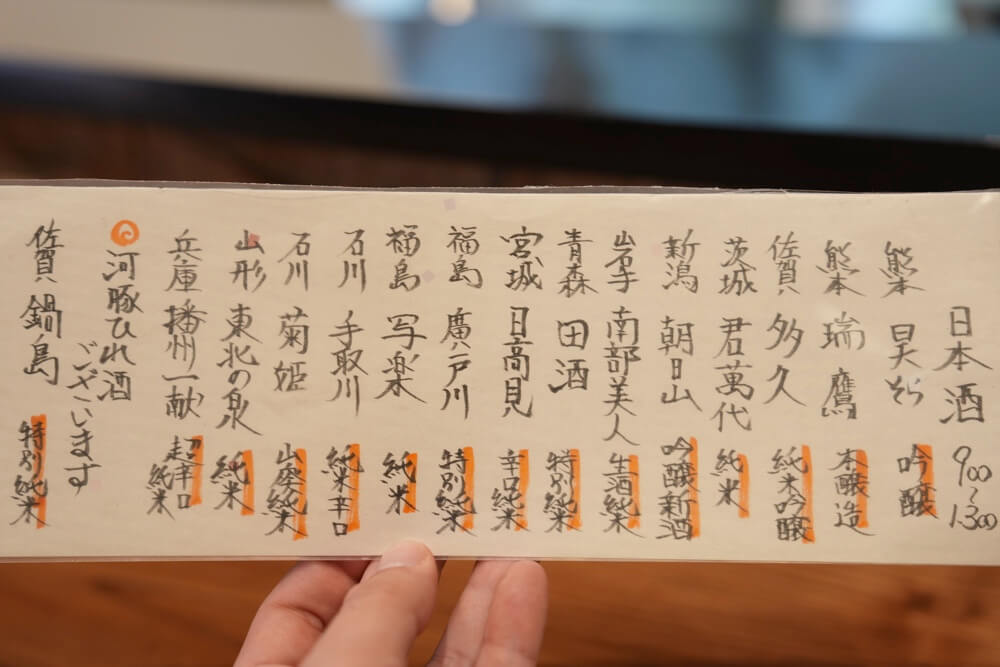 日本酒 900〜1.300
熊本 昊そら 吟醸
熊本 瑞鷹 本醸造
佐賀 多久 純米吟醸
茨城 君萬代 純米
新潟 朝日山 吟醸新酒
岩手 南部美人 生酒純米
青森 田酒 特別純米
宮城 日高見 辛口純米
福島 廣戸川 特別純米
福島 写楽 純米
石川 手取川 純米辛口
石川 菊姫 山廃純米
山形 東北の泉 純米
兵庫 播州一献 超辛口純米
河豚ひれ酒
ございます
佐賀 鍋島 特別純米